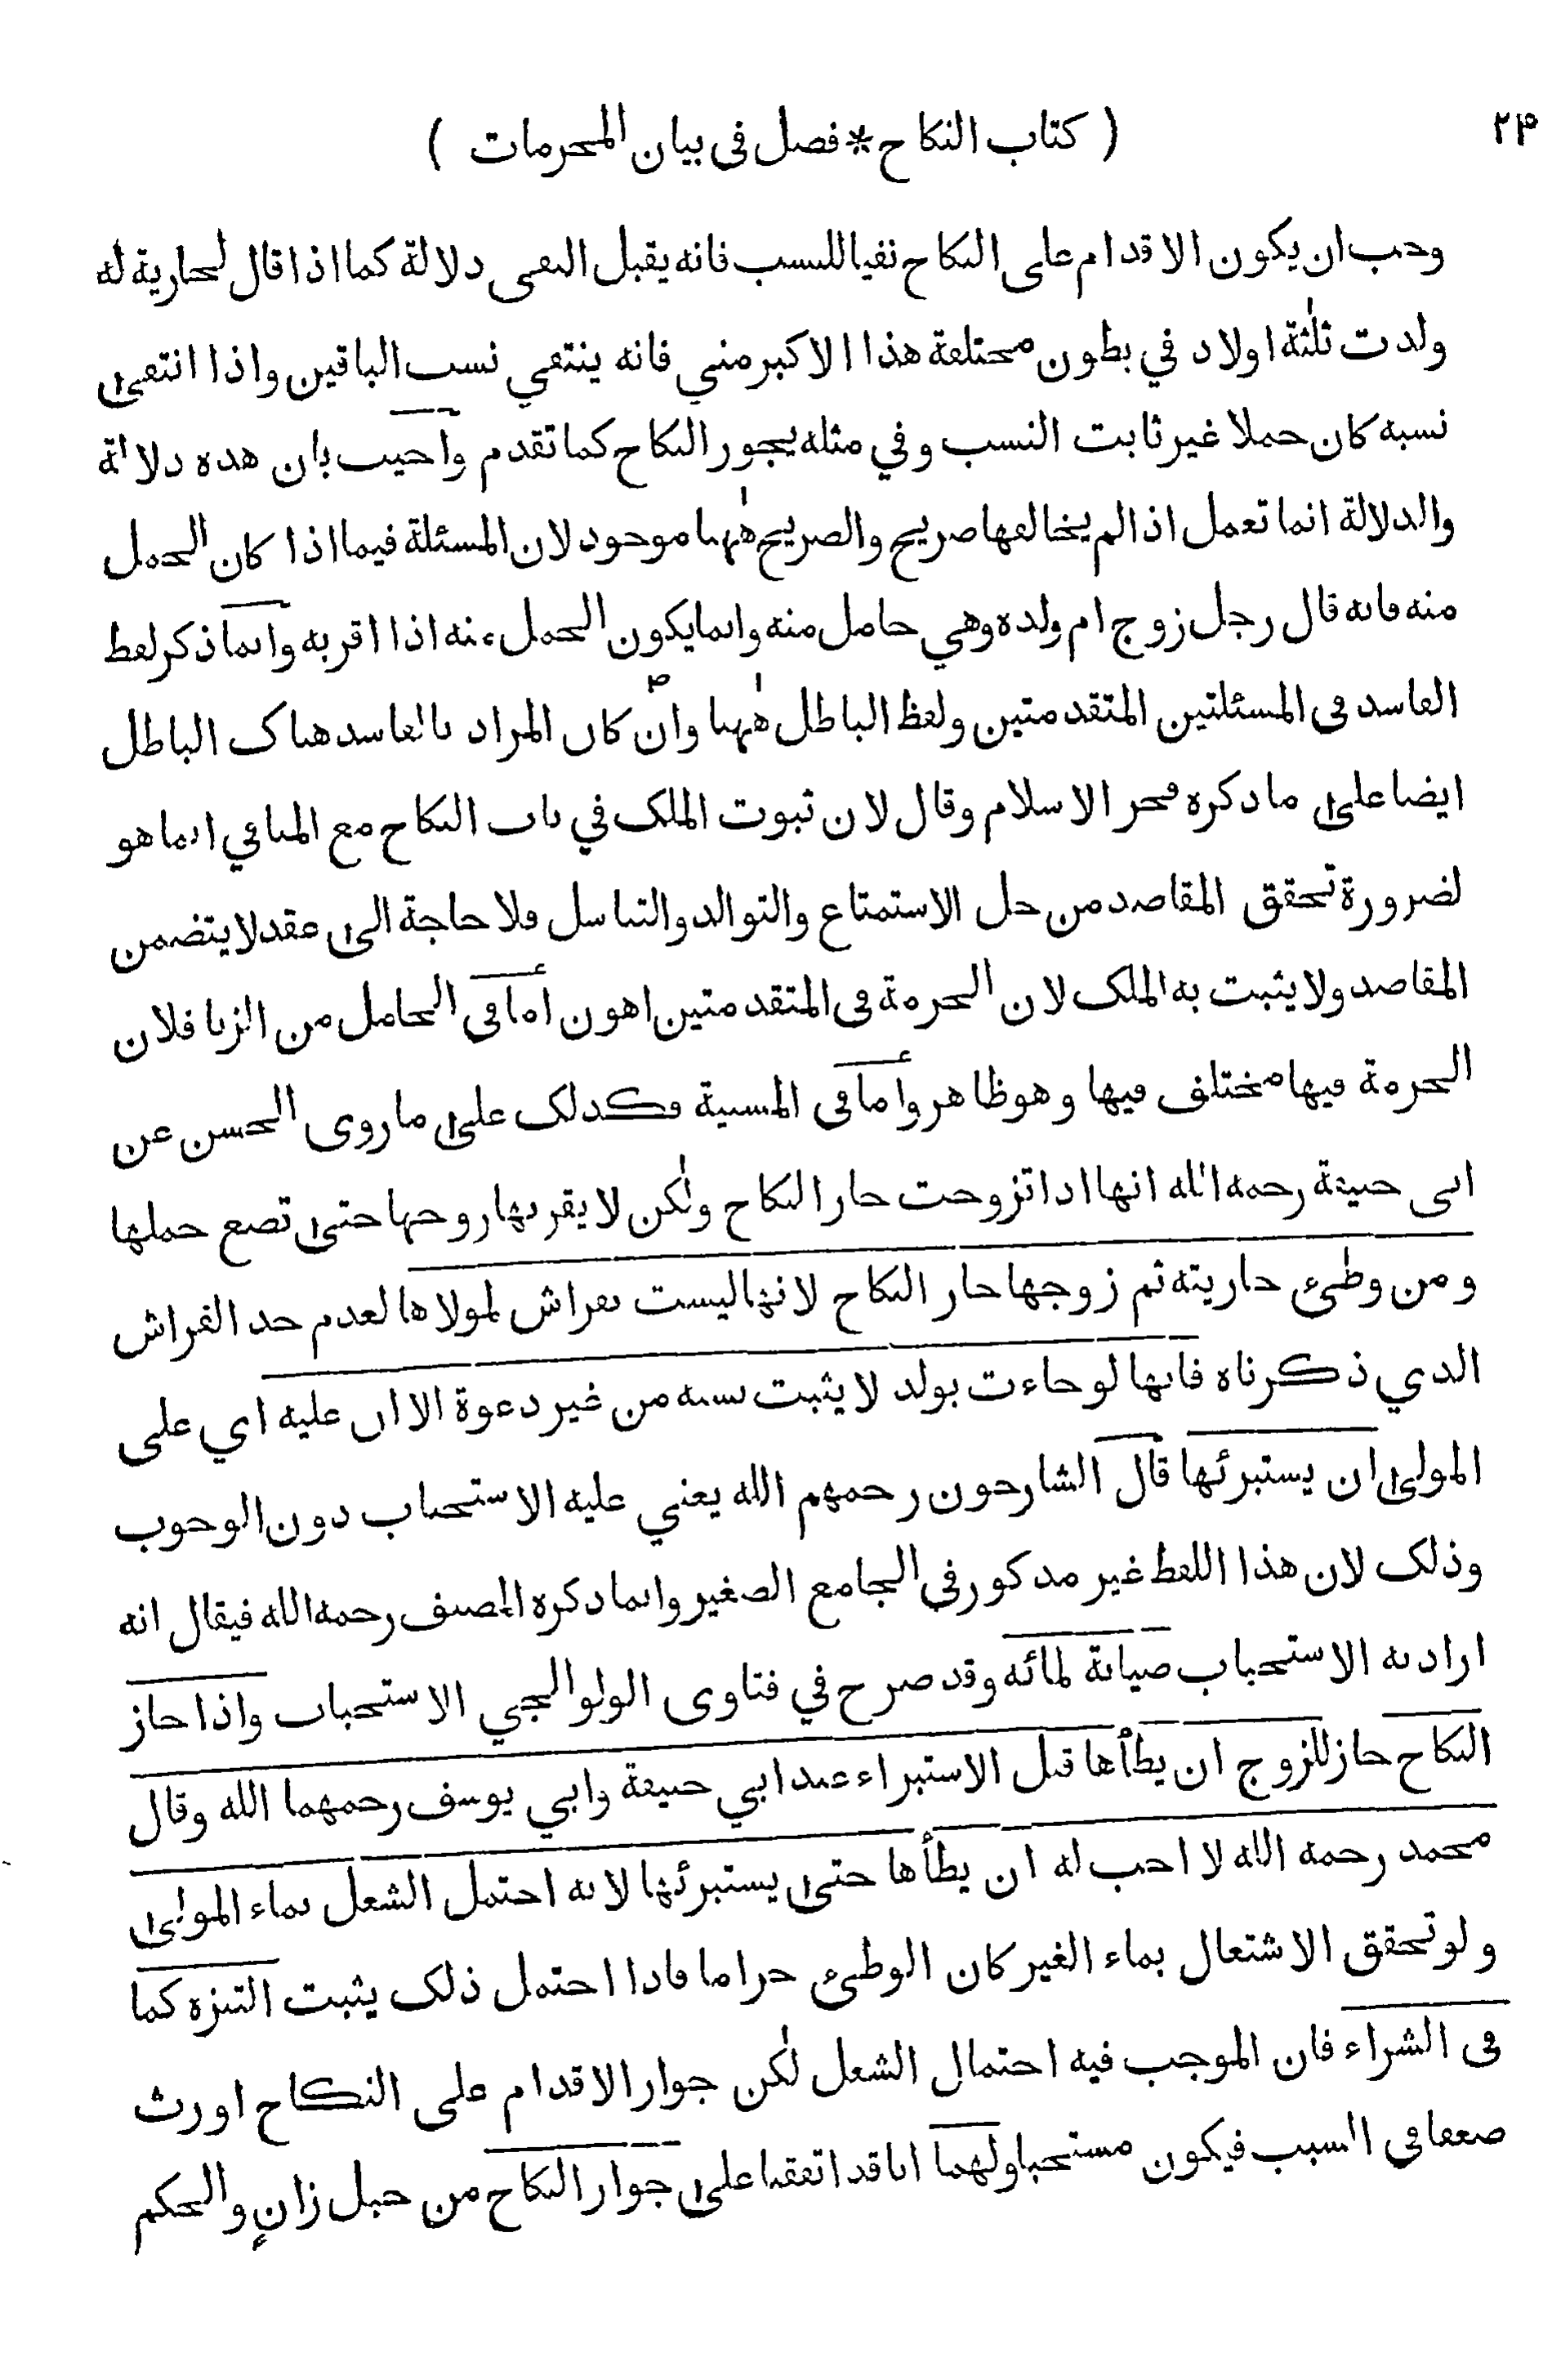 ۲۴ ( كتاب النكاح * فصل فى بيان المحرمات )
وجب ان يكون الاقدام على النكاح نفيا للنسب فانه يقبل النفى دلالة كما اذا قال لجارية له
ولدت ثلثة اولاد في بطون مختلفة هذا الاكبر مني فانه ينتفي نسب الباقين واذا انتفى
نسبه كان حملا غير ثابت النسب وفي مثله يجوز النكاح كما تقدم واجيب بان هذه دلالة
والدلالة انما تعمل اذا لم يخالفها صريح والصريح ههنا موجود لان المسئلة فيما اذا كان الحمل
منه فانه قال رجل زوج ام ولده وهي حامل منه وانما يكون الحمل منه اذا اقر به وانما ذكر لفظ
الفاسد فى المسئلتين المتقدمتين ولفظ الباطل ههنا وان كان المراد بالفاسد هناك الباطل
ايضا على ما ذكره فخر الاسلام وقال لان ثبوت الملك في باب النكاح مع المنافي انما هو
لضرورة تحقق المقاصد من حل الاستمتاع والتوالد والتناسل فلا حاجة الى عقد لا يتضمن
المقاصد ولا يثبت به الملك لان الحرمة فى المتقدمتين اهون أما فى الحامل من الزنا فلان
الحرمة فيها مختلف فيها وهو ظاهر وأما فى المسبية فكذلك على ما روى الحسن عن
ابى حنيفة رحمه الله انها اذا تزوجت جاز النكاح ولكن لا يقربها زوجها حتى تضع حملها
ومن وطئ جاريته ثم زوجها جاز النكاح لانها ليست بفراش لمولاها لعدم حد الفراش
الذي ذكرناه فانها لو جاءت بولد لا يثبت نسبه من غير دعوة الا ان عليه اي على
المولى ان يستبرئها قال الشارحون رحمهم الله يعني عليه الاستحباب دون الوجوب
وذلك لان هذا اللفظ غير مذكور فى الجامع الصغير وانما ذكره المصنف رحمه الله فيقال انه
اراد به الاستحباب صيانة لمائه وقد صرح في فتاوى الولوالجي الاستحباب واذا جاز
النكاح جاز للزوج ان يطأها قبل الاستبراء عند ابي حنيفة وابي يوسف رحمهما الله وقال
محمد رحمه الله لا احب له ان يطأها حتى يستبرئها لانه احتمل الشغل بماء المولى
ولو تحقق الاشتغال بماء الغير كان الوطئ حراما فاذا احتمل ذلك يثبت التنزه كما
فى الشراء فان الموجب فيه احتمال الشغل لكن جواز الاقدام على النكاح اورث
ضعفا فى السبب فيكون مستحبا ولهما انا قد اتفقنا على جواز النكاح من حبل زانٍ والحكم